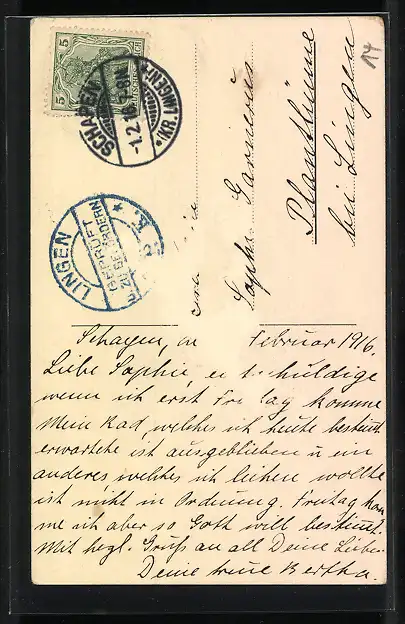 5
5
SCHAPEN
-1.2.16.7-8N.
*(KR. LINGEN)*
LINGEN
GEPRÜFT
ZU BEFÖRDERN
14
Sophie
Plantlünne
bei Lingen
Schapen, Februar 1916.
Liebe Sophie, huldige
wenn ich erst komme
Mein Rad, welches ich heute bestimt
erwartete ist ausgeblieben u ein
anderes welches ich leihen wollte
ist nicht in Ordnung. Freitag kom
me ich aber so Gott will bestimt.
Mit hrzl. Gruß an all Deine Lieben
Deine treue Bertha.